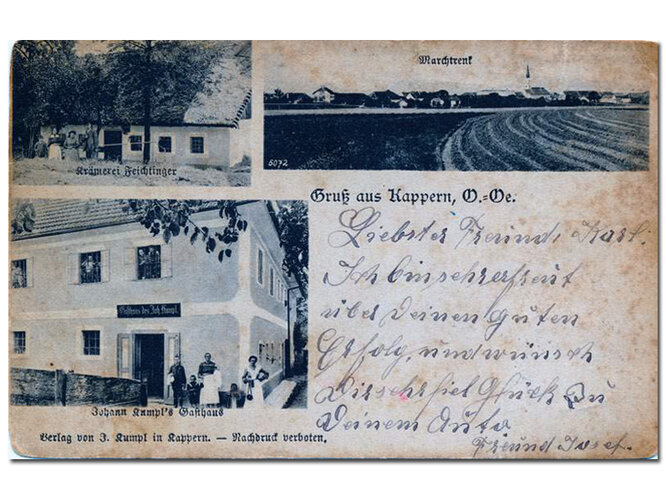 Marchtrenk
5072
Krämerei Feichtinger
Gruß aus Kappern, O.-Oe.
Liebster Freund, Karl.
Ich binsehrerfreut
über Deinen guten
Erfolg, und wünsch
Dirsehrfiel Glück zu
Deinem Auto
Freund Josef.
Gasthaus des Joh. Kumpl.
Johann Kumpl's Gasthaus
Verlag von J. Kumpl in Kappern. — Nachdruck verboten.